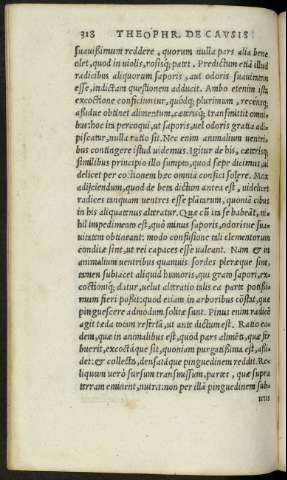 318 THEOPHR. DE CAVSIS
suauißimum reddere, quorum nulla pars alia bene
olet, quod in uiolis, rosisq; patet. Predictum etiã illud
radicibus aliquorum saporis, aut odoris suauitatem
esse, indictam questionem adducit. Ambo etenim ista
excoctione conficiuntur, quòdq; plurimum, recensq;
aßidue obtinet alimentum, cæterisq; transmittit omni
bus: hoc ita percoqui, ut saporis, uel odoris gratia adi-
piscatur, nulla ratio sit. Nec enim animalium uentri-
bus contingere istud uidemus. Igitur de his, cæterisq;
similibus principio illo sumpto, quod sepe dicimus, ui
delicet per coctionem hæc omnia confici solere. Mox
adijciendum, quod de bem dictum antea est, uidelicet
radices tanquam uentres esse plãtarum, quoniã cibus
in his aliquatenus alteratur. Que cũ ita se habeãt, ni-
hil impedimento est, quò minus saporis, odorisue sua-
uitatem obtineant: modo confusione tali elementorum
conditæ sint, ut rei capaces esse ualeant. Nam & in
animalium uentribus quamuis sordes pleræque sint,
tamen subiacet aliquid humoris, qui gratu sapori, ex-
coctioniq; datur, uelut alteratio talis ea parte potißi-
mum fieri poßit: quod etiam in arboribus cõstat, quæ
pinguescere admodum solitæ sunt. Pinus enim radicē
agit tæda totam refertã, ut ante dictum est. Ratio ea-
dem, quæ in animalibus est, quod pars alimēti, quæ fer
buerit, excoctáque sit, quoniam purgatißima est, aßi-
det: & collecta, densatáque pinguedinem reddit. Re-
liquum uerò sursum transmissum, partes, quæ supra
terram eminent, nutrit: non per illã pinguedinem sub-